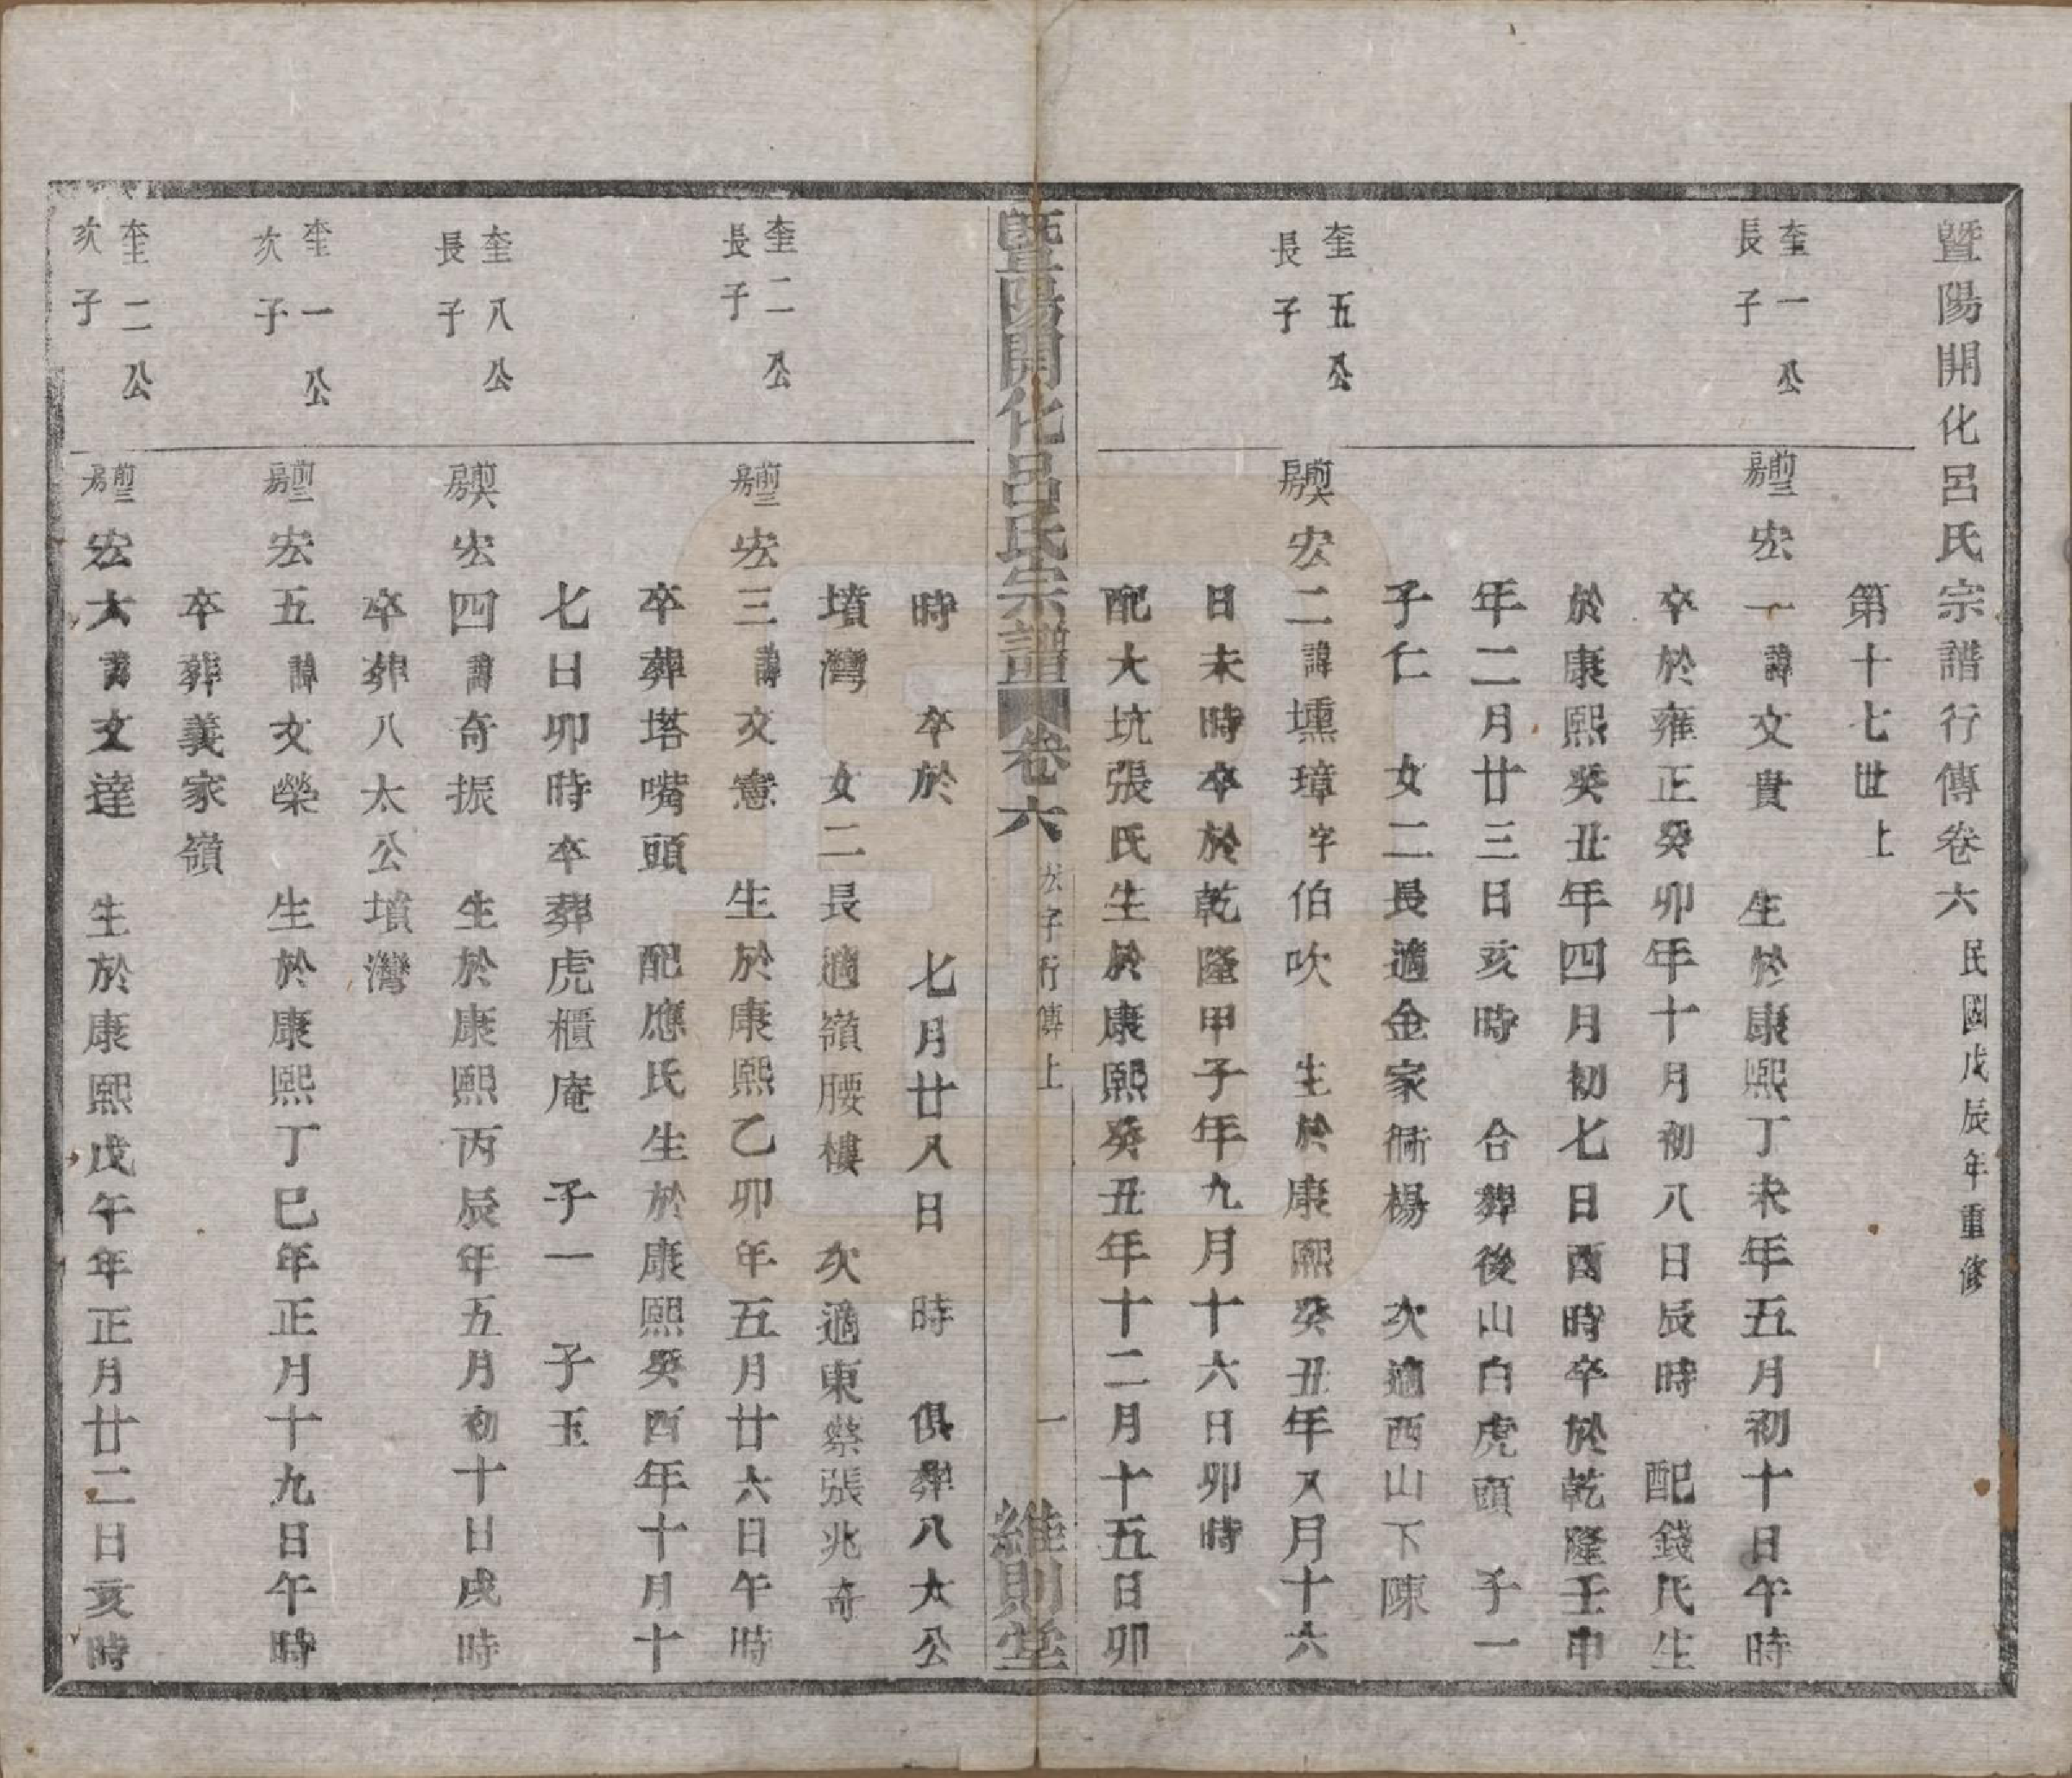 暨陽開化呂氏宗譜行傳卷六 民國戊辰年重修
第十七世上
奎一公
長子
宏一諱文貴 生於康熙丁未年五月初十日午時
卒於雍正癸卯年十月初八日辰時 配錢氏生
於康熙癸丑年四月初七日酉時卒於乾隆壬申
年二月廿三日亥時 合葬後山白虎頭 子一
子仁 女二長適金家衕楊 次適西山下陳
奎五公
長子
宏二諱壎璋字伯吹 生於康熙癸丑年又月十六
日未時卒於乾隆甲子年九月十六日卯時
配大坑張氏生於康熙癸丑年十二月十五日卯
暨陽開化呂氏宗譜 卷六 宏字行傳上 一 維則堂
時 卒於 七月廿八日 時 俱葬八太公
墳灣 女二長適嶺腰樓 次適東蔡張兆奇
奎二公
長子
宏三諱文憲 生於康熙乙卯年五月廿六日午時
卒葬塔嘴頭 配應氏生於康熙癸酉年十月十
七日卯時卒葬虎櫃庵 子一 子玉
奎八公
長子
宏四諱奇振 生於康熙丙辰年五月初十日戌時
卒葬八太公墳灣
奎一公
次子
宏五諱文榮 生於康熙丁巳年正月十九日午時
卒葬義家嶺
奎二公
次子
宏六諱文達 生於康熙戊午年正月廿二日亥時